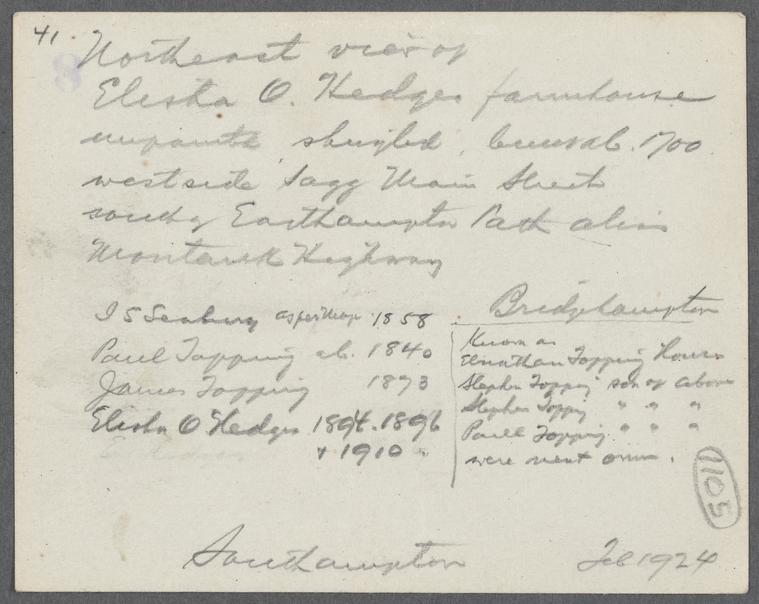 41.
8
Northeast view of
Elisha O. Hedges farmhouse
unpainted, shingled, ab. 1700
westside Sagg Main Street
south of Easthampton Path alias
Montauk Highway
I S Seabury as per map 1858
Paul Topping ab. 1840
James Topping 1873
Elisha O Hedges 1894. 1896
+ 1910
E Hedges
Bridgehampton
Known as
Elnathan Topping House
Stephen Topping son of above
Stephen Topping " " "
Paul Topping " " "
were next own.
1105
Southampton
Feb 1924